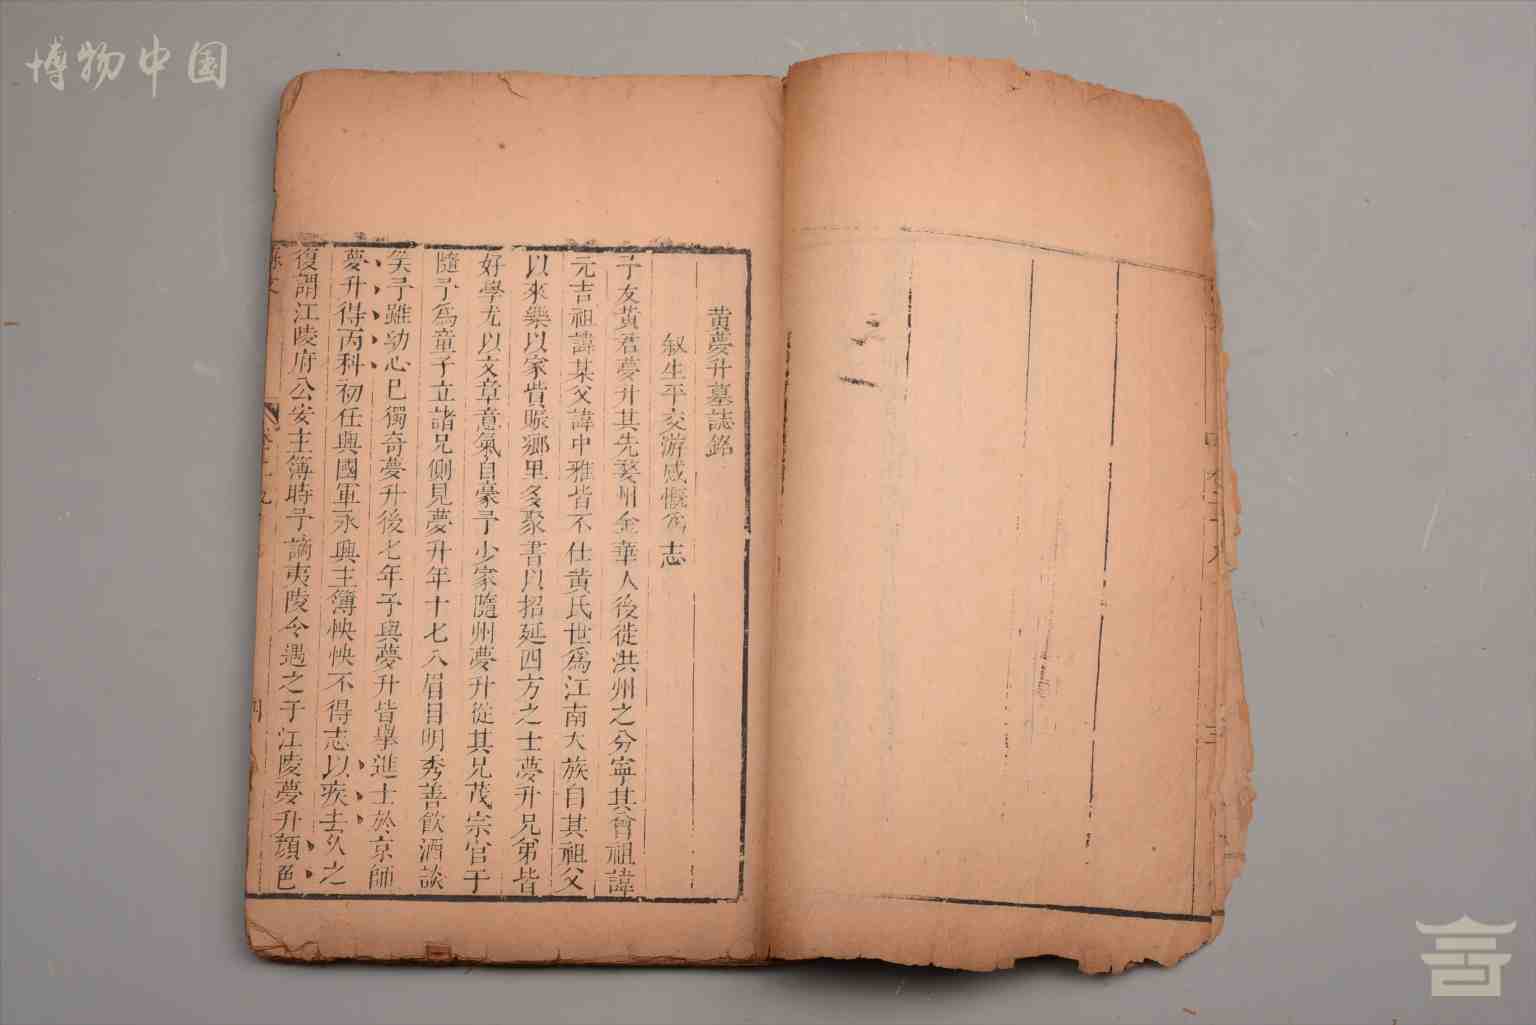 博物中国
黃夢升墓誌銘
叙生平交游感慨為志
予友黃君夢升其先婺州金華人後徙洪州之分寧其曾祖諱
元吉祖諱某父諱中雅皆不仕黃氏世為江南大族自其祖父
以來樂以家貲賑鄉里多聚書以招延四方之士夢升兄弟皆
好學尤以文章意氣自豪予少家隨州夢升從其兄茂宗官于
隨予為童子立諸兄側見夢升年十七八眉目明秀善飲酒談
笑予雖幼心已獨奇夢升後七年予與夢升皆舉進士於京師
夢升得丙科初任興國軍永興主簿怏怏不得志以疾去久之
復謂江陵府公安主簿時予謫夷陵令遇之于江陵夢升顏色